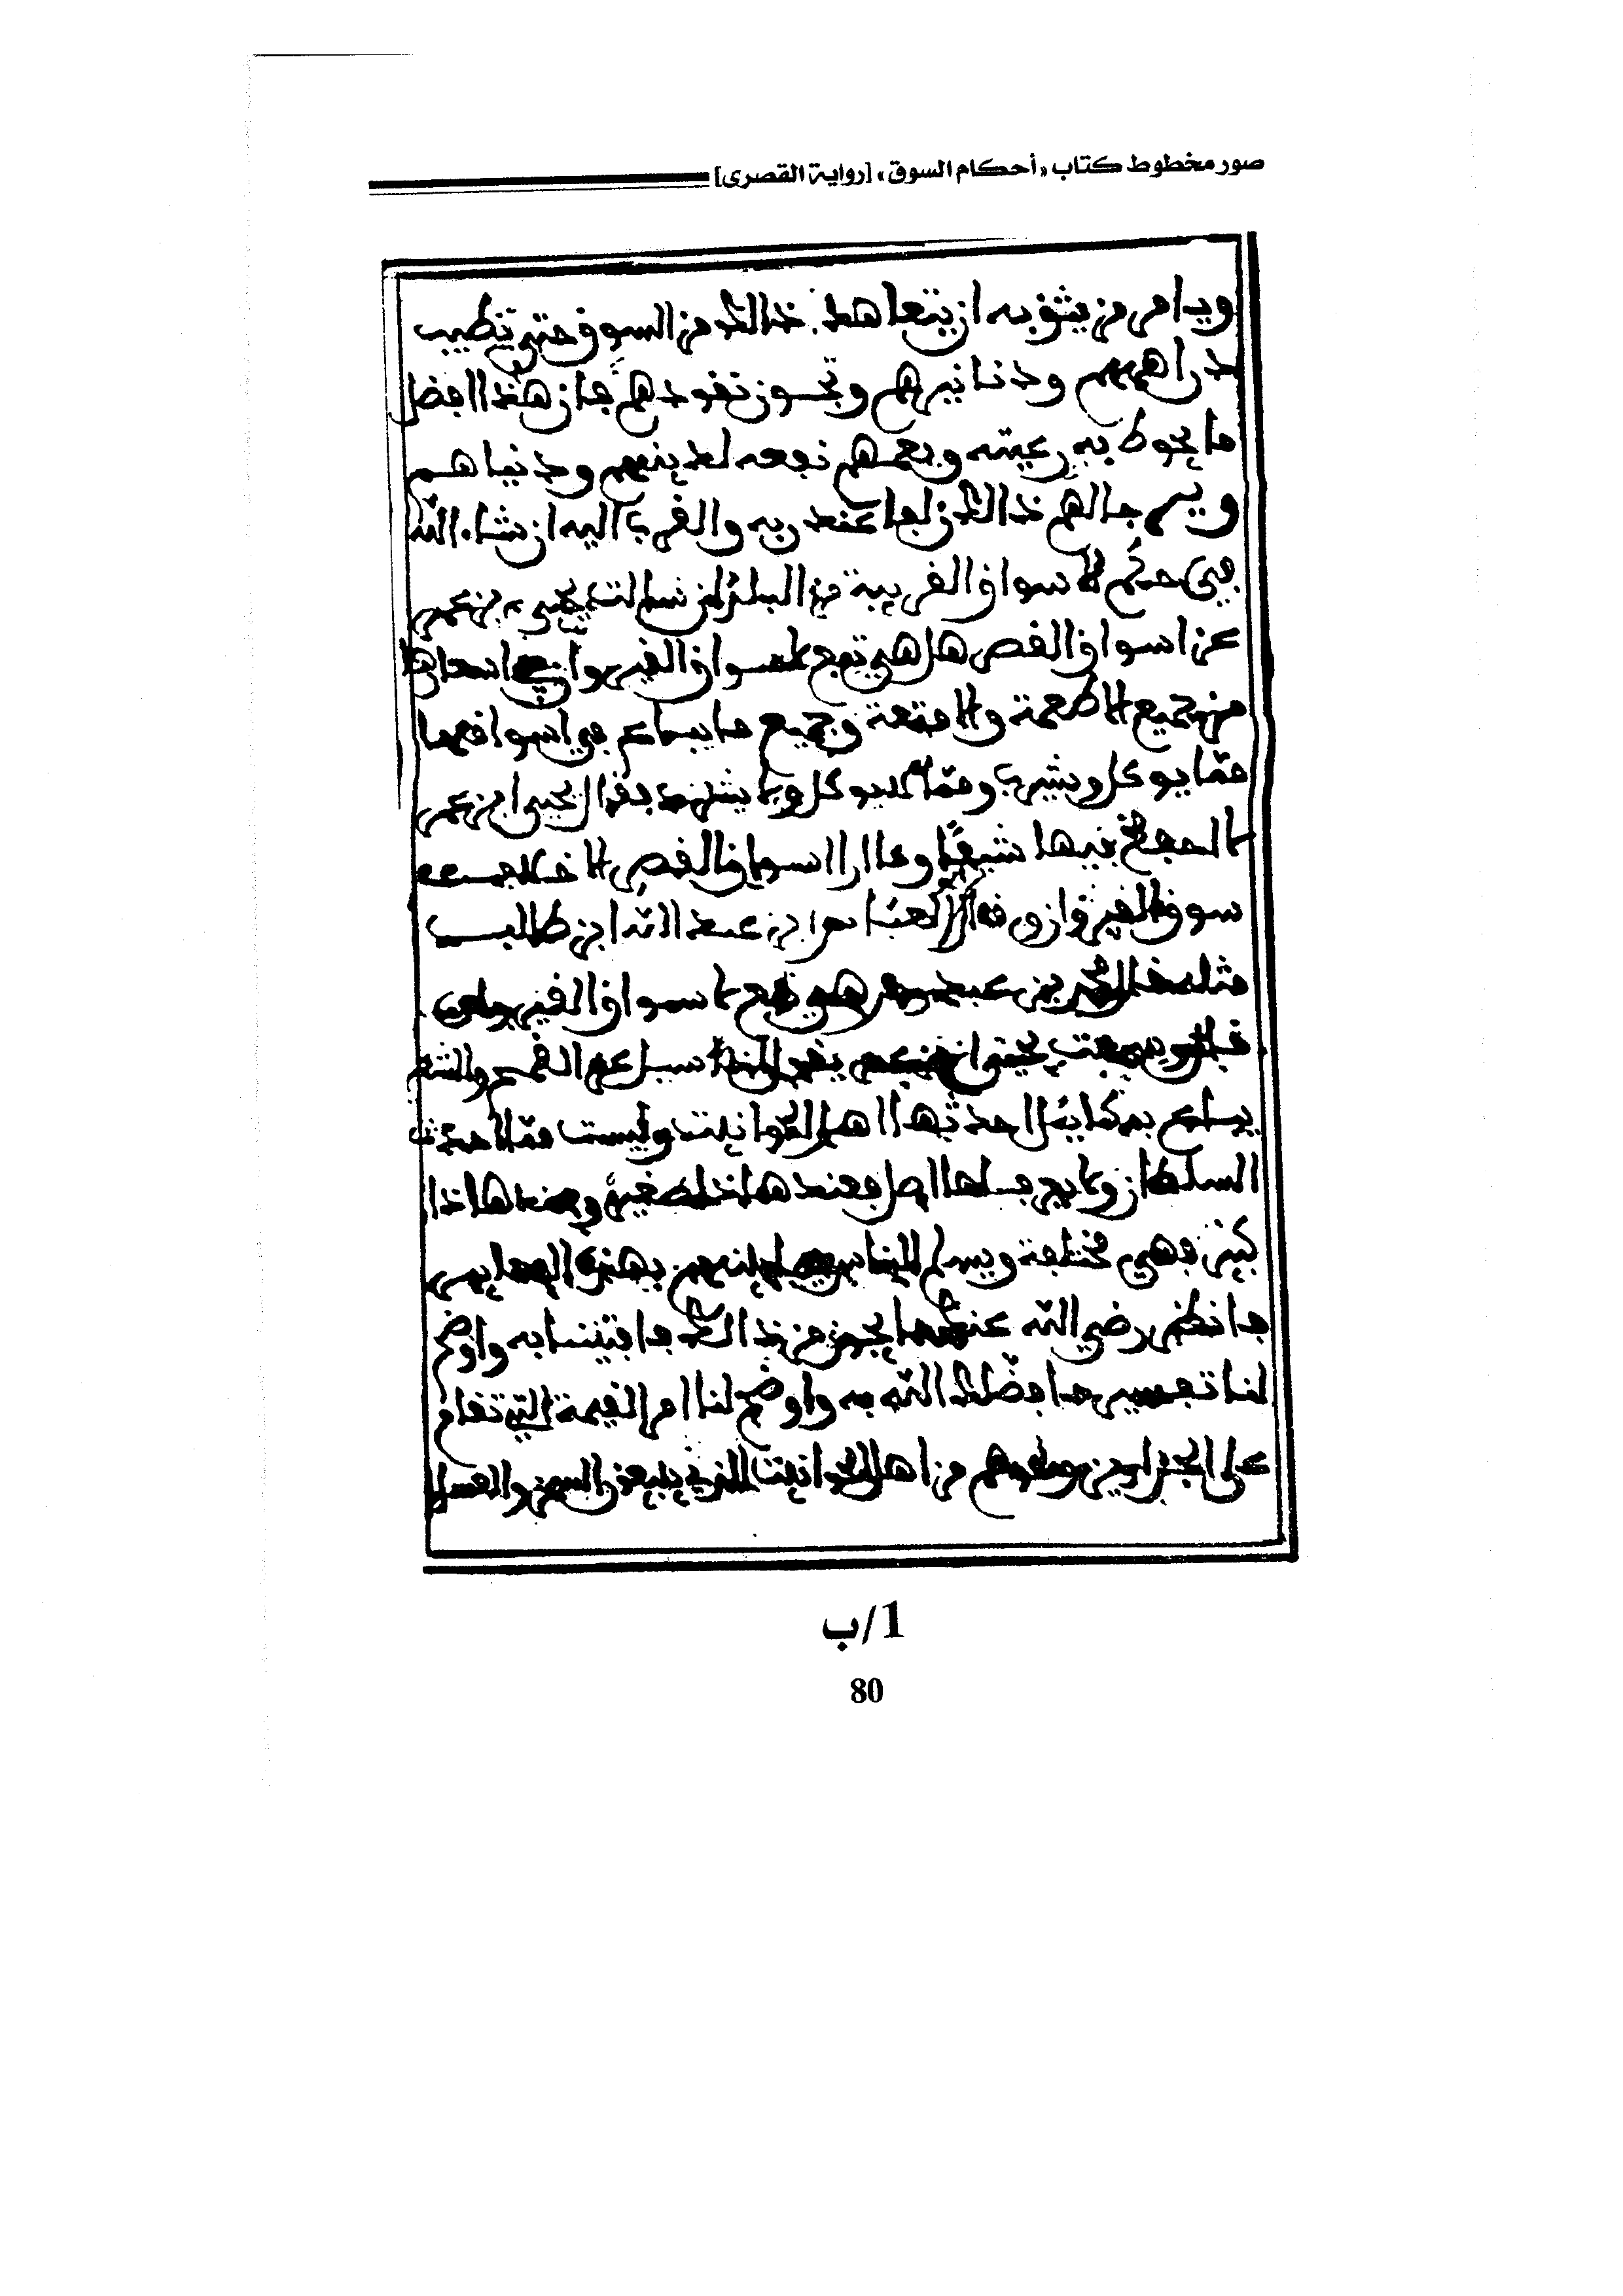 صور مخطوط كتاب «أحكام السوق» [رواية القصري]
ويامر من يثق به ان يتعاهد ذالك من السوق حتى تطيب
دراهمهم ودنانيرهم وتجوز نقودهم فان هذا افضل
ما يحوط به رعيته ويعمهم نفعه لدينهم ودنياهم
ويرجا لهم ذالك زلفا عند ربه والقرب اليه ان شاء الله
في حكم الاسواق القريبة من البلد سالت يحيى بن عمر
عن اسواق القصر هل هي تبع لاسواق القيروان في اسعارها
من جميع الاطعمة والامتعة وجميع ما يباع في اسواقها
مما يوكل ويشرب ومما لا يوكل ولا يشرب فقال يحيى ابن عمر
لا احفظ فيها شيئا وما ارا اسواق القصر الا خلاف
سوق القيروان وقال ابو العباس عبد الله ابن طالب
مثله قال محمد بن عبدوس هي تبع لاسواق القيروان
قال وسمعت يحيى ابن عمر يقول لنا سبيل القمح والشعير
يباع بمكاييل احدثها اهل الحوانيت وليست مما احدث
السلطان ولا يعرف لها اصل فعند هاذا صغير وعند هاذا
كبير فهي مختلفة ويسلم الناس بينهم بهذه المعايير
فانظر رضي الله عنك ما يجوز من ذالك فافتنا به واوضح
لنا تفسير ما فضلك الله به واوضح لنا امر القيمة التي تقام
على الجزارين وغيرهم من اهل الحوانيت الذي يبيعون السمن والعسل
1/ب
80